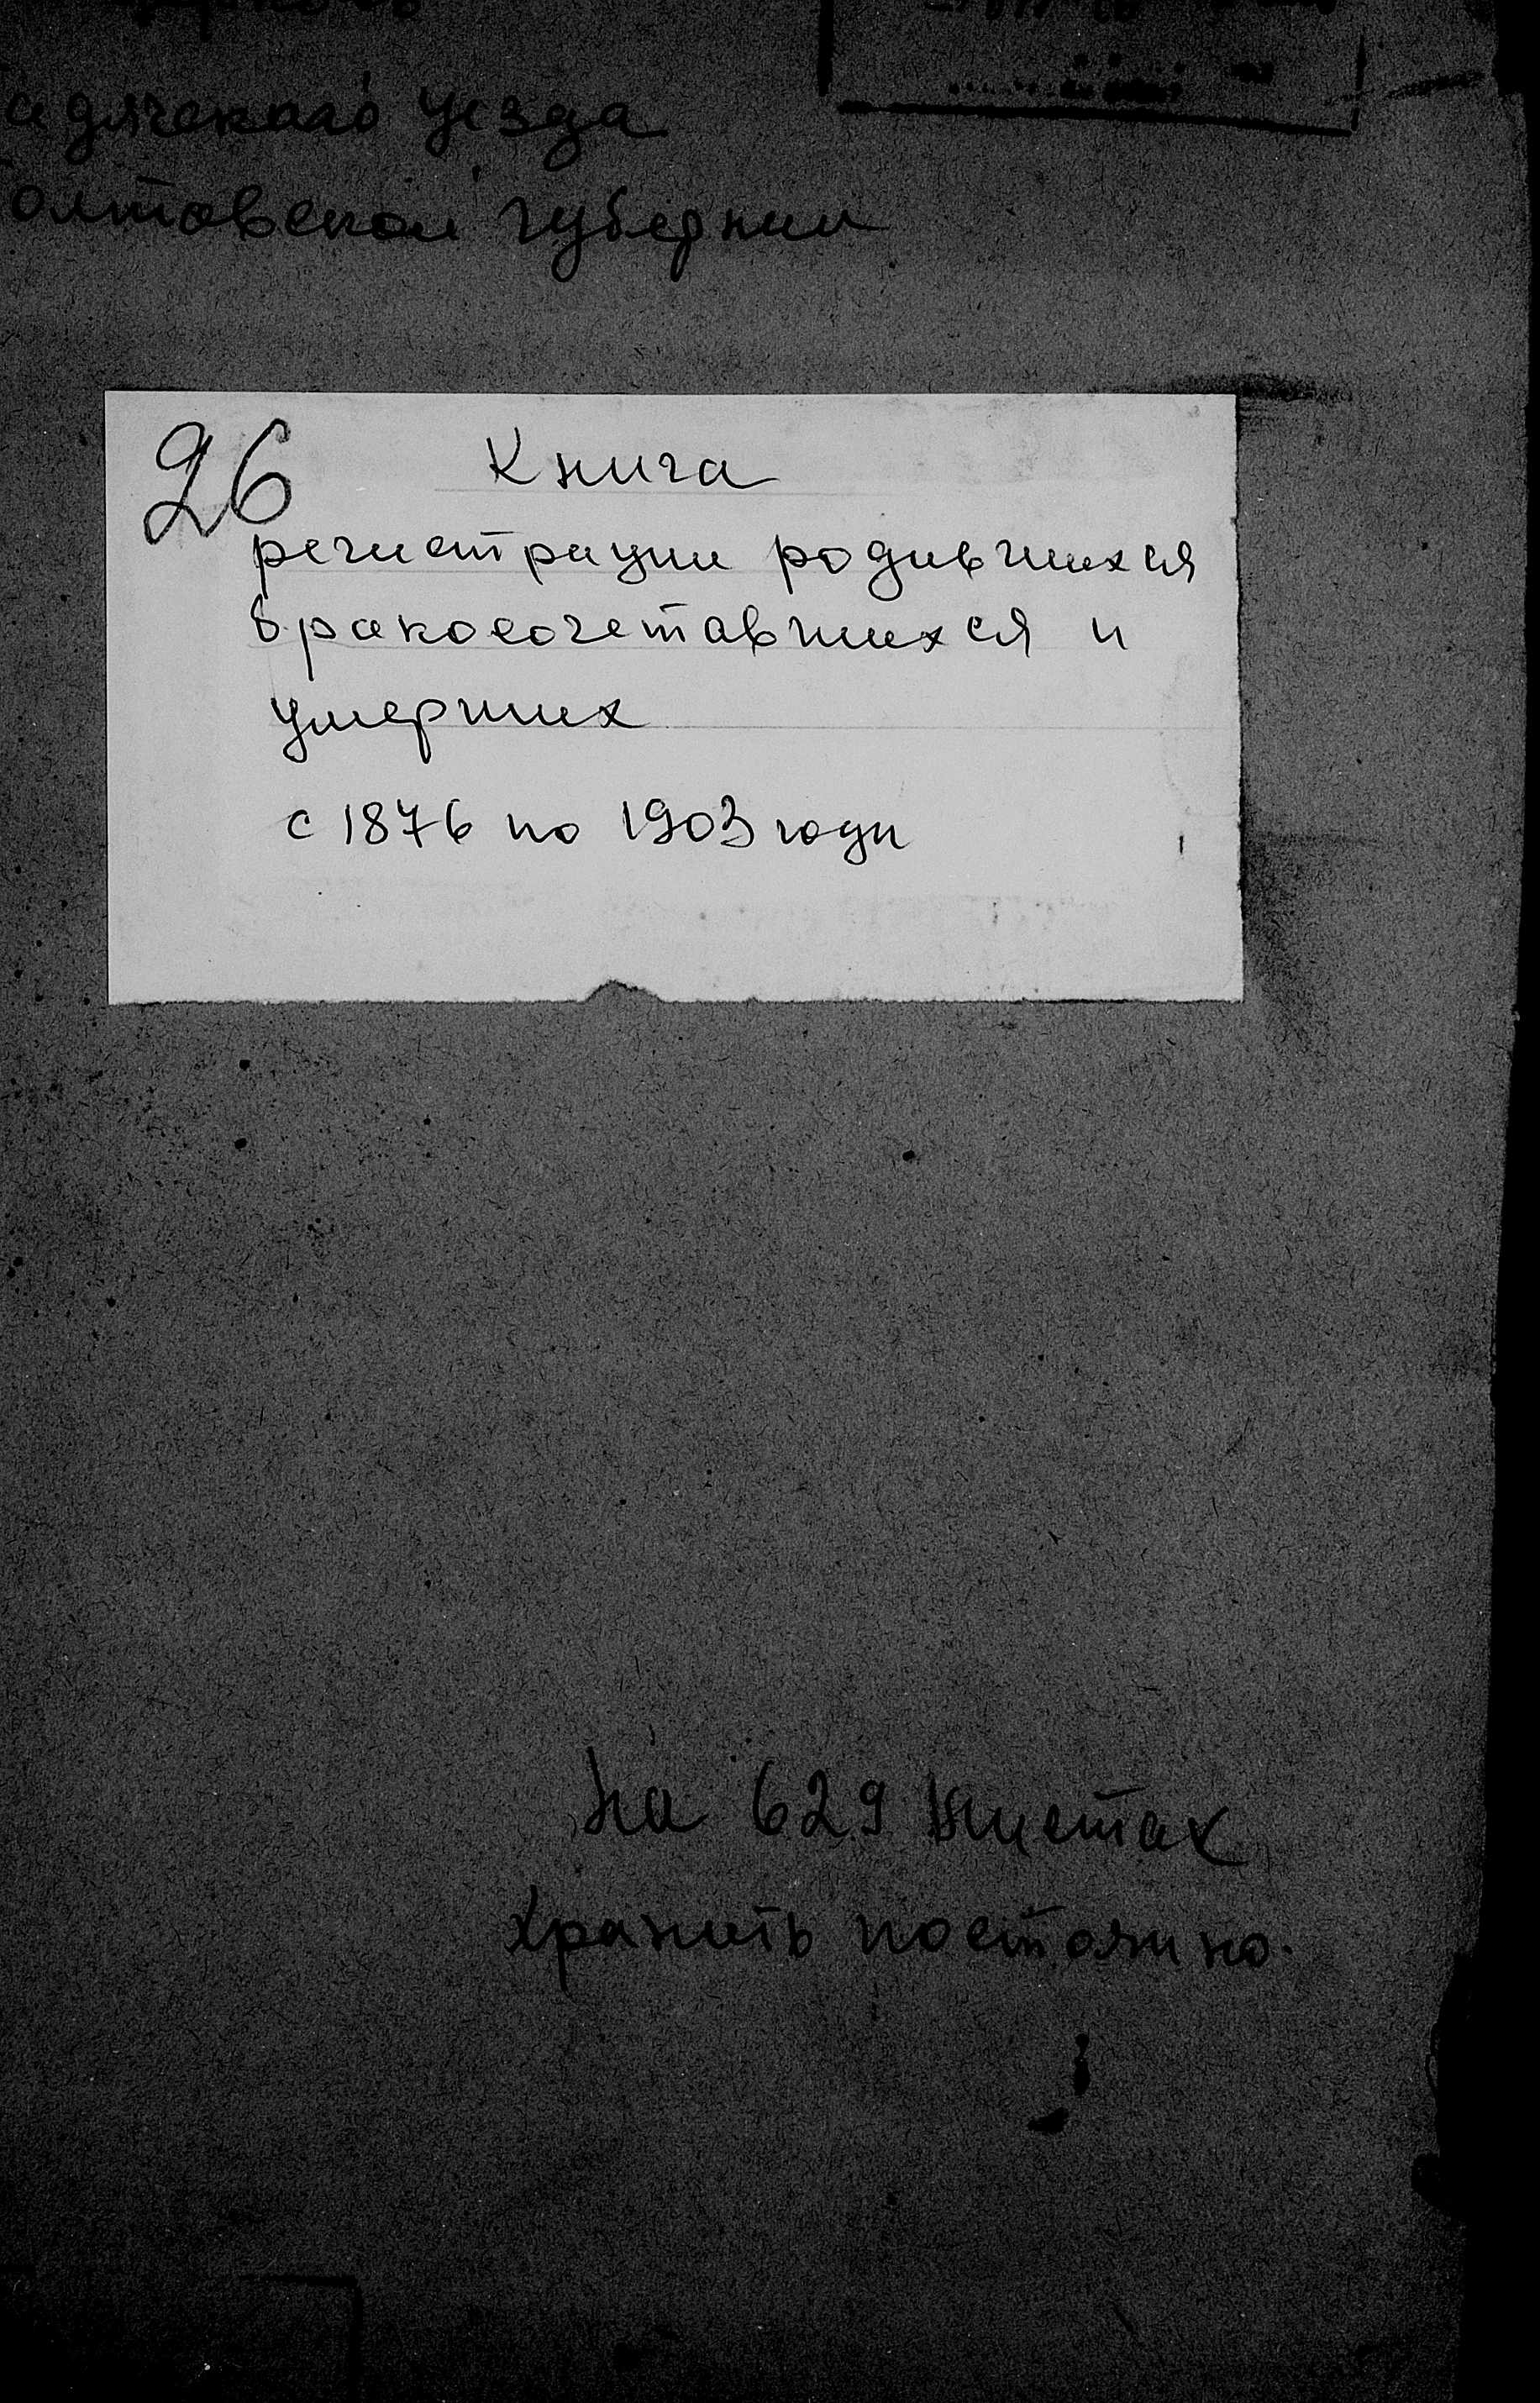 адячскаго уезда
олтавской губернии
26
Книга
регистрации родившихся
бракосочетавшихся и
умерших
с 1876 по 1903 годы
На 629 листах
Хранить постоянно.